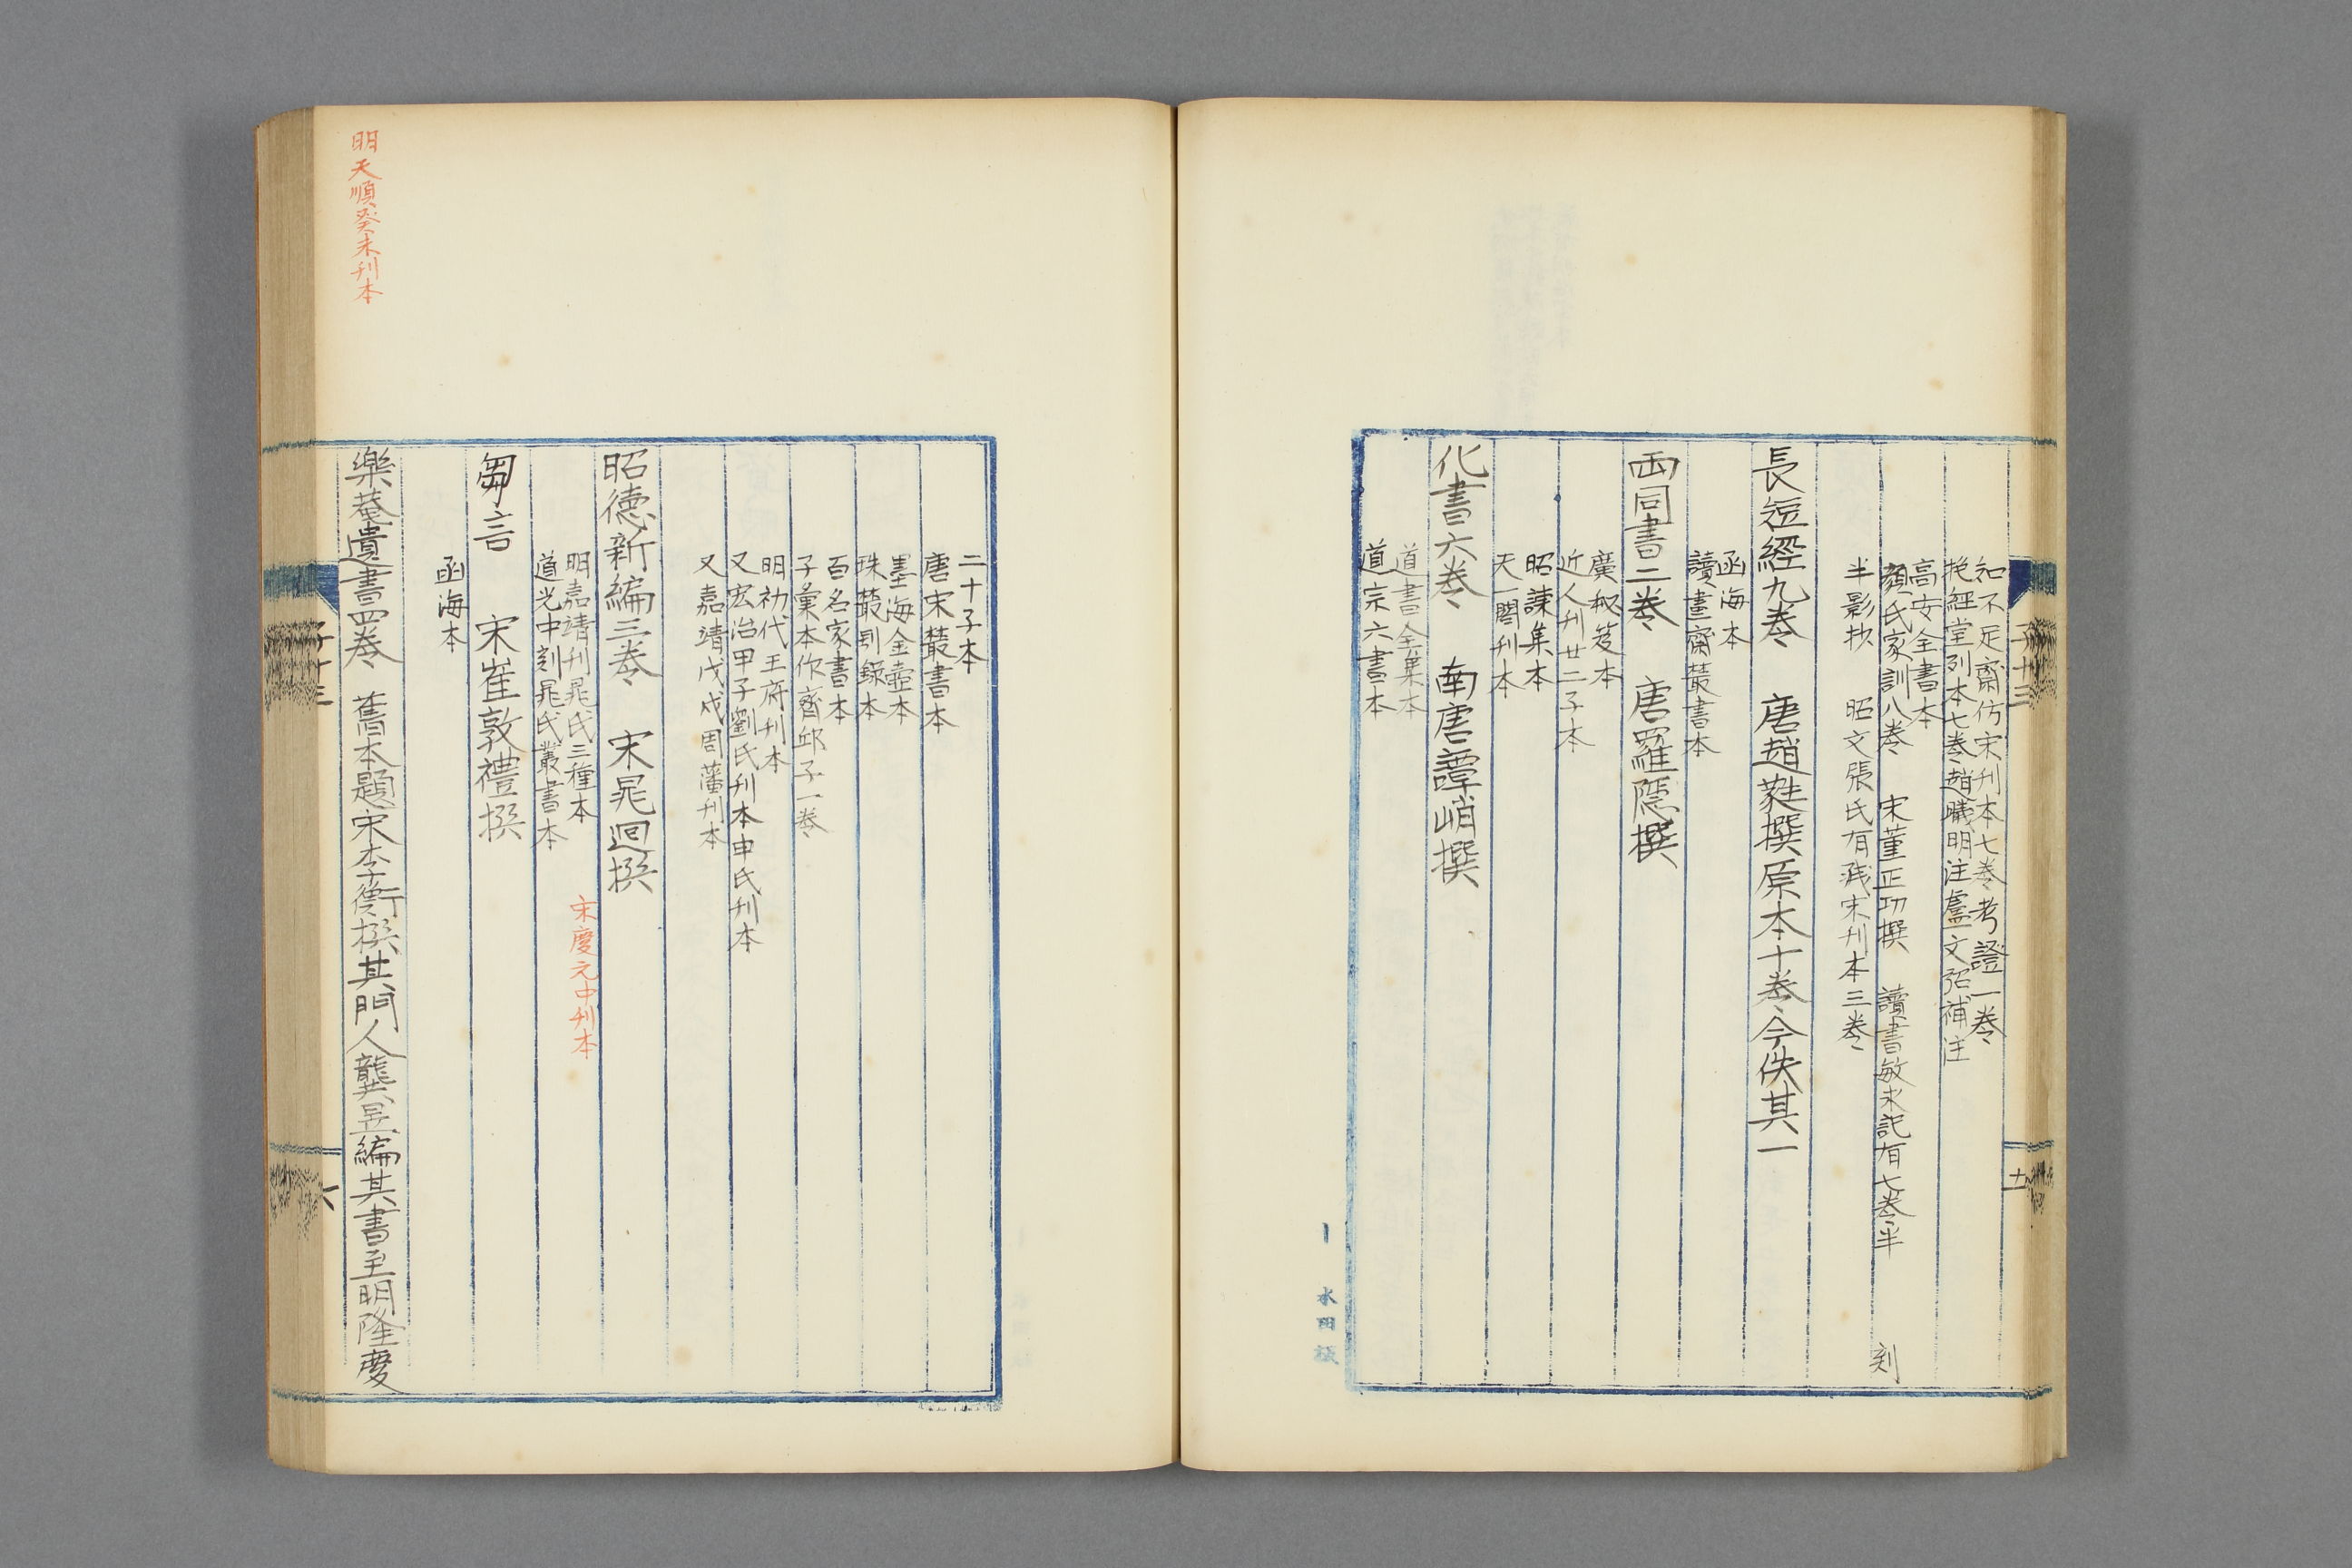 知不足齋仿宋刊本七卷考證一卷
抱經堂列本七卷趙曦明注盧文弨補注
高安全書本
顏氏家訓八卷　宋董正功撰　讀書敏求記有七卷半
半影抄　昭文張氏有残宋刊本三卷
刻
長短經九卷　唐趙蕤撰原本十卷今佚其一
函海本
讀畫齋叢書本
兩同書二卷　唐羅隱撰
廣秘笈本
近人刊廿二子本
昭諫集本
天一閣刊本
化書六卷　南唐譚峭撰
道書全集本
道宗六書本
子十三
十一
水田板
二十子本
唐宋叢書本
墨海金壺本
珠叢別錄本
百名家書本
子彙本作齊邱子一卷
明初代王府刊本
又宏治甲子劉氏刊本申氏刊本
又嘉靖戊戌周藩刊本
昭德新編三卷　宋晁迥撰
明嘉靖刊晁氏三種本
宋慶元中刊本
道光中刻晁氏叢書本
芻言　宋崔敦禮撰
函海本
樂菴遺書四卷　舊本題宋李衡撰其門人龔昱編其書至明隆慶
明天順癸未刊本
子十三